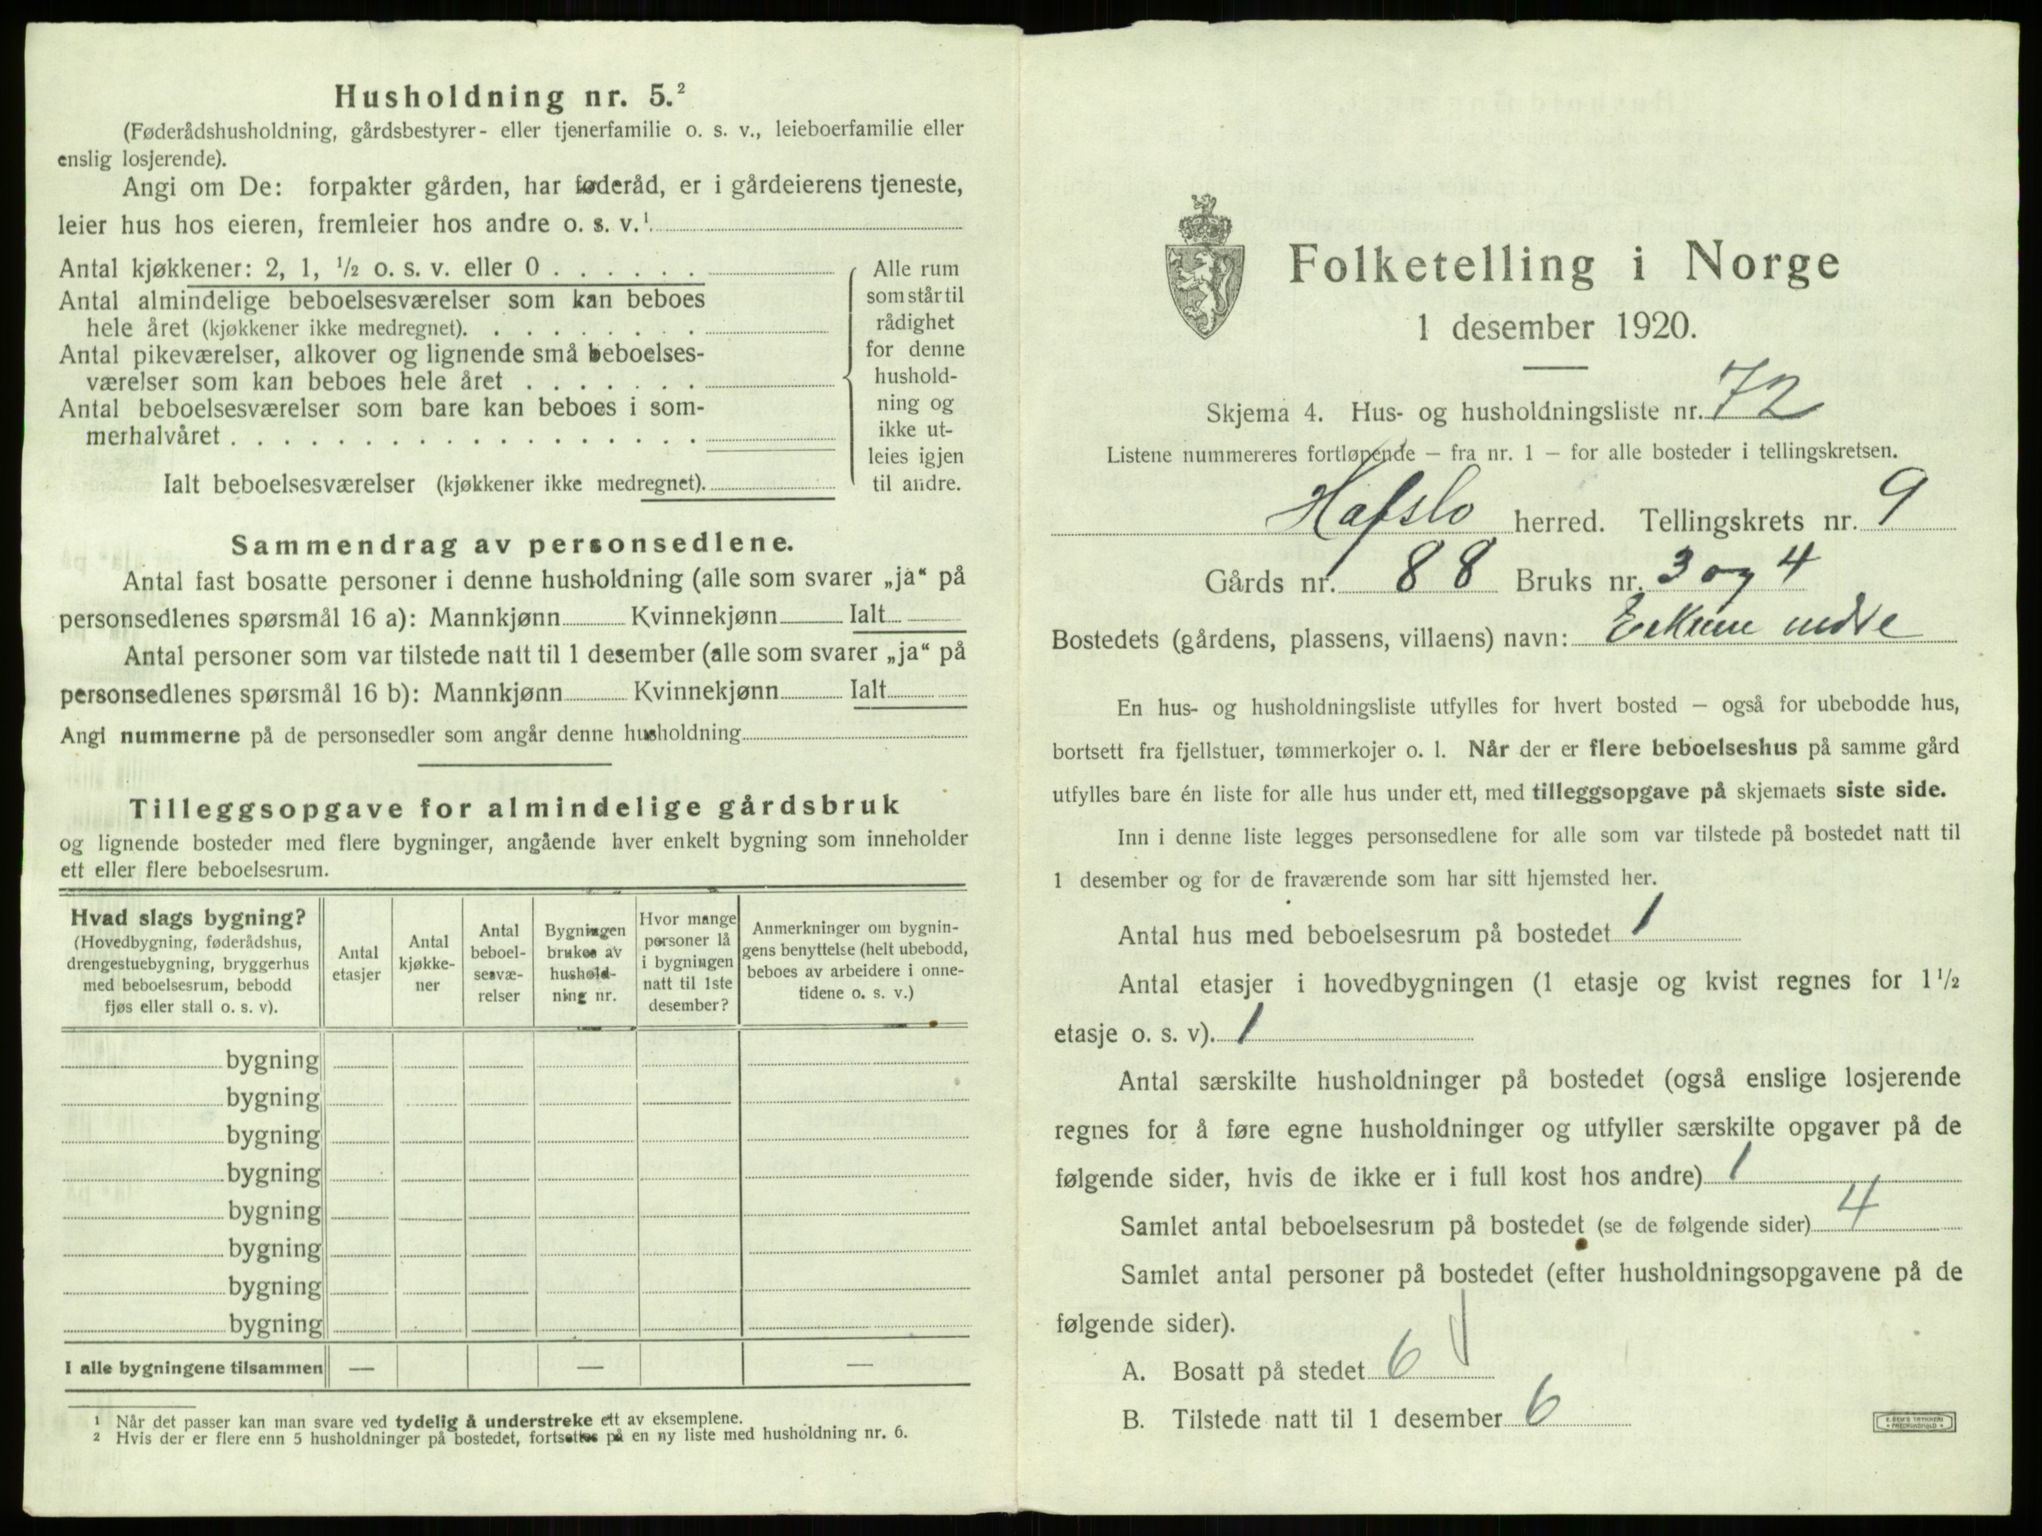 Husholdning nr. 5.²
(Føderådshusholdning, gårdsbestyrer- eller tjenerfamilie o. s. v., leieboerfamilie eller
enslig losjerende).
Angi om De: forpakter gården, har føderåd, er i gårdeierens tjeneste,
leier hus hos eieren, fremleier hos andre o. s. v.¹
Antal kjøkkener: 2, 1, ½ o. s. v. eller 0 . . . . . .
Antal almindelige beboelsesværelser som kan beboes
hele året (kjøkkener ikke medregnet). . . . . . . . .
Antal pikeværelser, alkover og lignende små beboelses-
værelser som kan beboes hele året . . . . . . .
Antal beboelsesværelser som bare kan beboes i som-
merhalvåret . . . . . . . . . . . . . . . . . .
Ialt beboelsesværelser (kjøkkener ikke medregnet).
Alle rum
som står til
rådighet
for denne
hushold-
ning og
ikke ut-
leies igjen
til andre.
Sammendrag av personsedlene.
Antal fast bosatte personer i denne husholdning (alle som svarer „ja“ på
personsedlenes spørsmål 16 a): Mannkjønn Kvinnekjønn Ialt
Antal personer som var tilstede natt til 1 desember (alle som svarer „ja“ på
personsedlenes spørsmål 16 b): Mannkjønn Kvinnekjønn Ialt
Angi nummerne på de personsedler som angår denne husholdning
Tilleggsopgave for almindelige gårdsbruk
og lignende bosteder med flere bygninger, angående hver enkelt bygning som inneholder
ett eller flere beboelsesrum.
Hvad slags bygning?
(Hovedbygning, føderådshus,
drengestuebygning, bryggerhus
med beboelsesrum, bebodd
fjøs eller stall o. s. v).
Antal
etasjer
Antal
kjøkke-
ner
Antal
beboel-
sesvæ-
relser
Bygningen
brukes av
hushold-
ning nr.
Hvor mange
personer lå
i bygningen
natt til 1ste
desember?
Anmerkninger om bygnin-
gens benyttelse (helt ubebodd,
beboes av arbeidere i onne-
tidene o. s. v.)
bygning
bygning
bygning
bygning
bygning
bygning
bygning
bygning
I alle bygningene tilsammen — — —
¹ Når det passer kan man svare ved tydelig å understreke ett av eksemplene.
² Hvis der er flere enn 5 husholdninger på bostedet, fortsettes på en ny liste med husholdning nr. 6.
Folketelling i Norge
1 desember 1920.
Skjema 4. Hus- og husholdningsliste nr. 72
Listene nummereres fortløpende – fra nr. 1 – for alle bosteder i tellingskretsen.
Hafslo herred. Tellingskrets nr. 9
Gårds nr. 88 Bruks nr. 3 og 4
Bostedets (gårdens, plassens, villaens) navn: indre
En hus- og husholdningsliste utfylles for hvert bosted – også for ubebodde hus,
bortsett fra fjellstuer, tømmerkojer o. l. Når der er flere beboelseshus på samme gård
utfylles bare én liste for alle hus under ett, med tilleggsopgave på skjemaets siste side.
Inn i denne liste legges personsedlene for alle som var tilstede på bostedet natt til
1 desember og for de fraværende som har sitt hjemsted her.
Antal hus med beboelsesrum på bostedet 1
Antal etasjer i hovedbygningen (1 etasje og kvist regnes for 1½
etasje o. s. v). 1
Antal særskilte husholdninger på bostedet (også enslige losjerende
regnes for å føre egne husholdninger og utfyller særskilte opgaver på de
følgende sider, hvis de ikke er i full kost hos andre) 1
Samlet antal beboelsesrum på bostedet (se de følgende sider) 4
Samlet antal personer på bostedet (efter husholdningsopgavene på de
følgende sider).
A. Bosatt på stedet 6
B. Tilstede natt til 1 desember 6